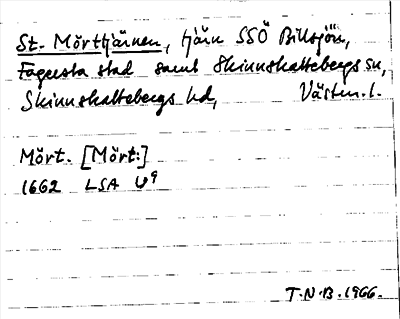 St. Mörttjärnen, tjärn SSÖ Billsjön,
Fagersta stad samt Skinnskattebergs sn,
Skinnskattebergs hd, Västm.l.
Mört. [Mört:]
1662 LSA U9
T.N.B. 1966.